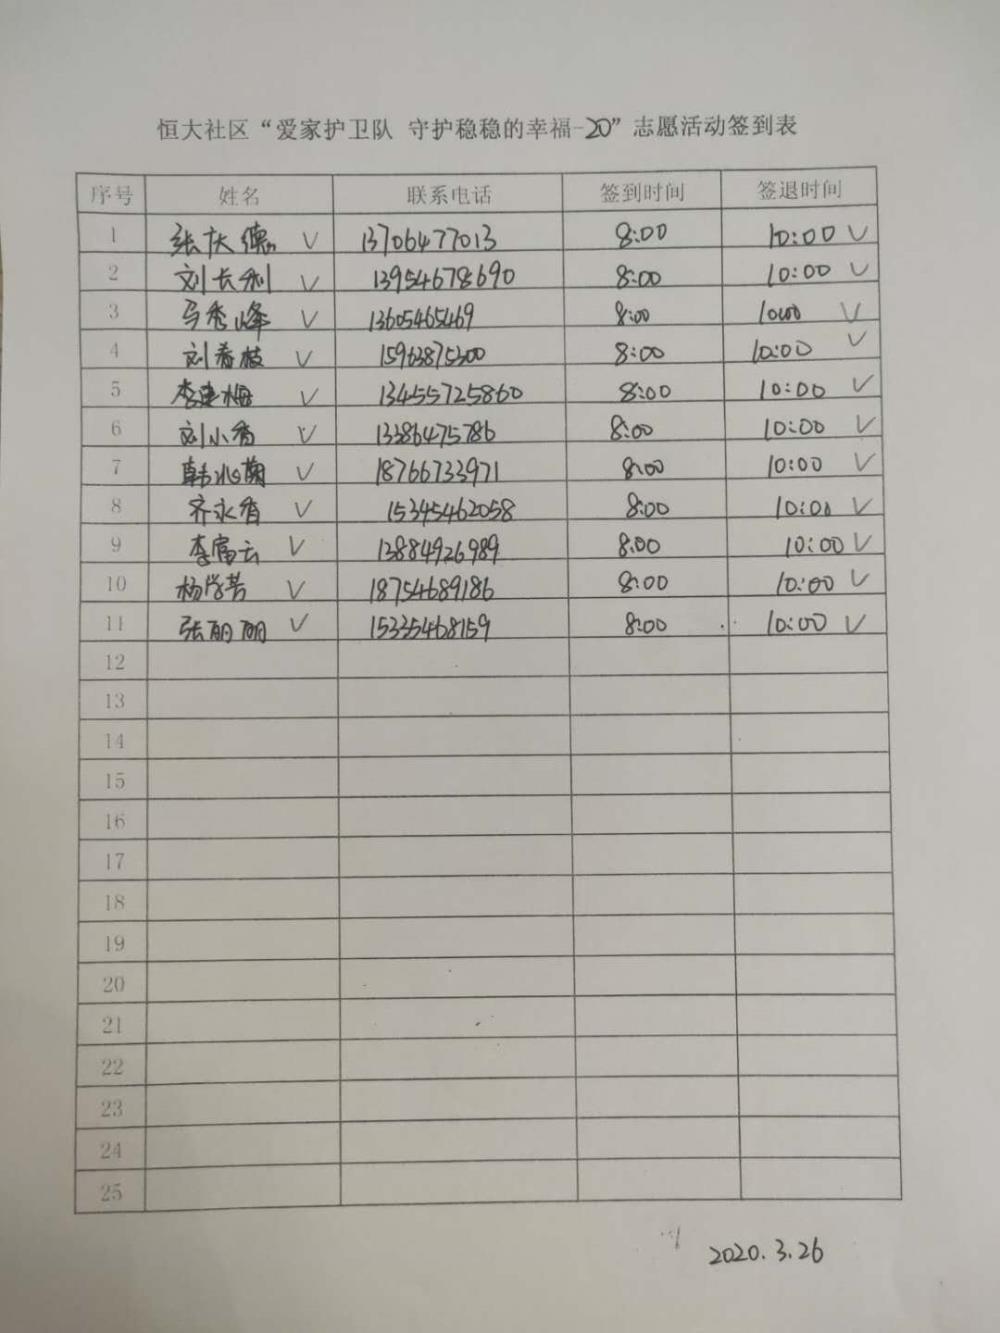 恒大社区“爱家护卫队 守护稳稳的幸福-20”志愿活动签到表
序号 姓名 联系电话 签到时间 签退时间
1 张庆德 √ 13706477013 8:00 10:00 √
2 刘长利 √ 13954678690 8:00 10:00 √
3 马秀峰 √ 13605465469 8:00 10:00 √
4 刘春枝 √ 15963875300 8:00 10:00 √
5 李建梅 √ 13455725860 8:00 10:00 √
6 刘小香 √ 13386475786 8:00 10:00 √
7 韩 √ 18766733971 8:00 10:00 √
8 齐永香 √ 15345462058 8:00 10:00 √
9 李富云 √ 13884926989 8:00 10:00 √
10 杨学芳 √ 18754689186 8:00 10:00 √
11 张丽丽 √ 15335468159 8:00 10:00 √
12
13
14
15
16
17
18
19
20
21
22
23
24
25
2020.3.26